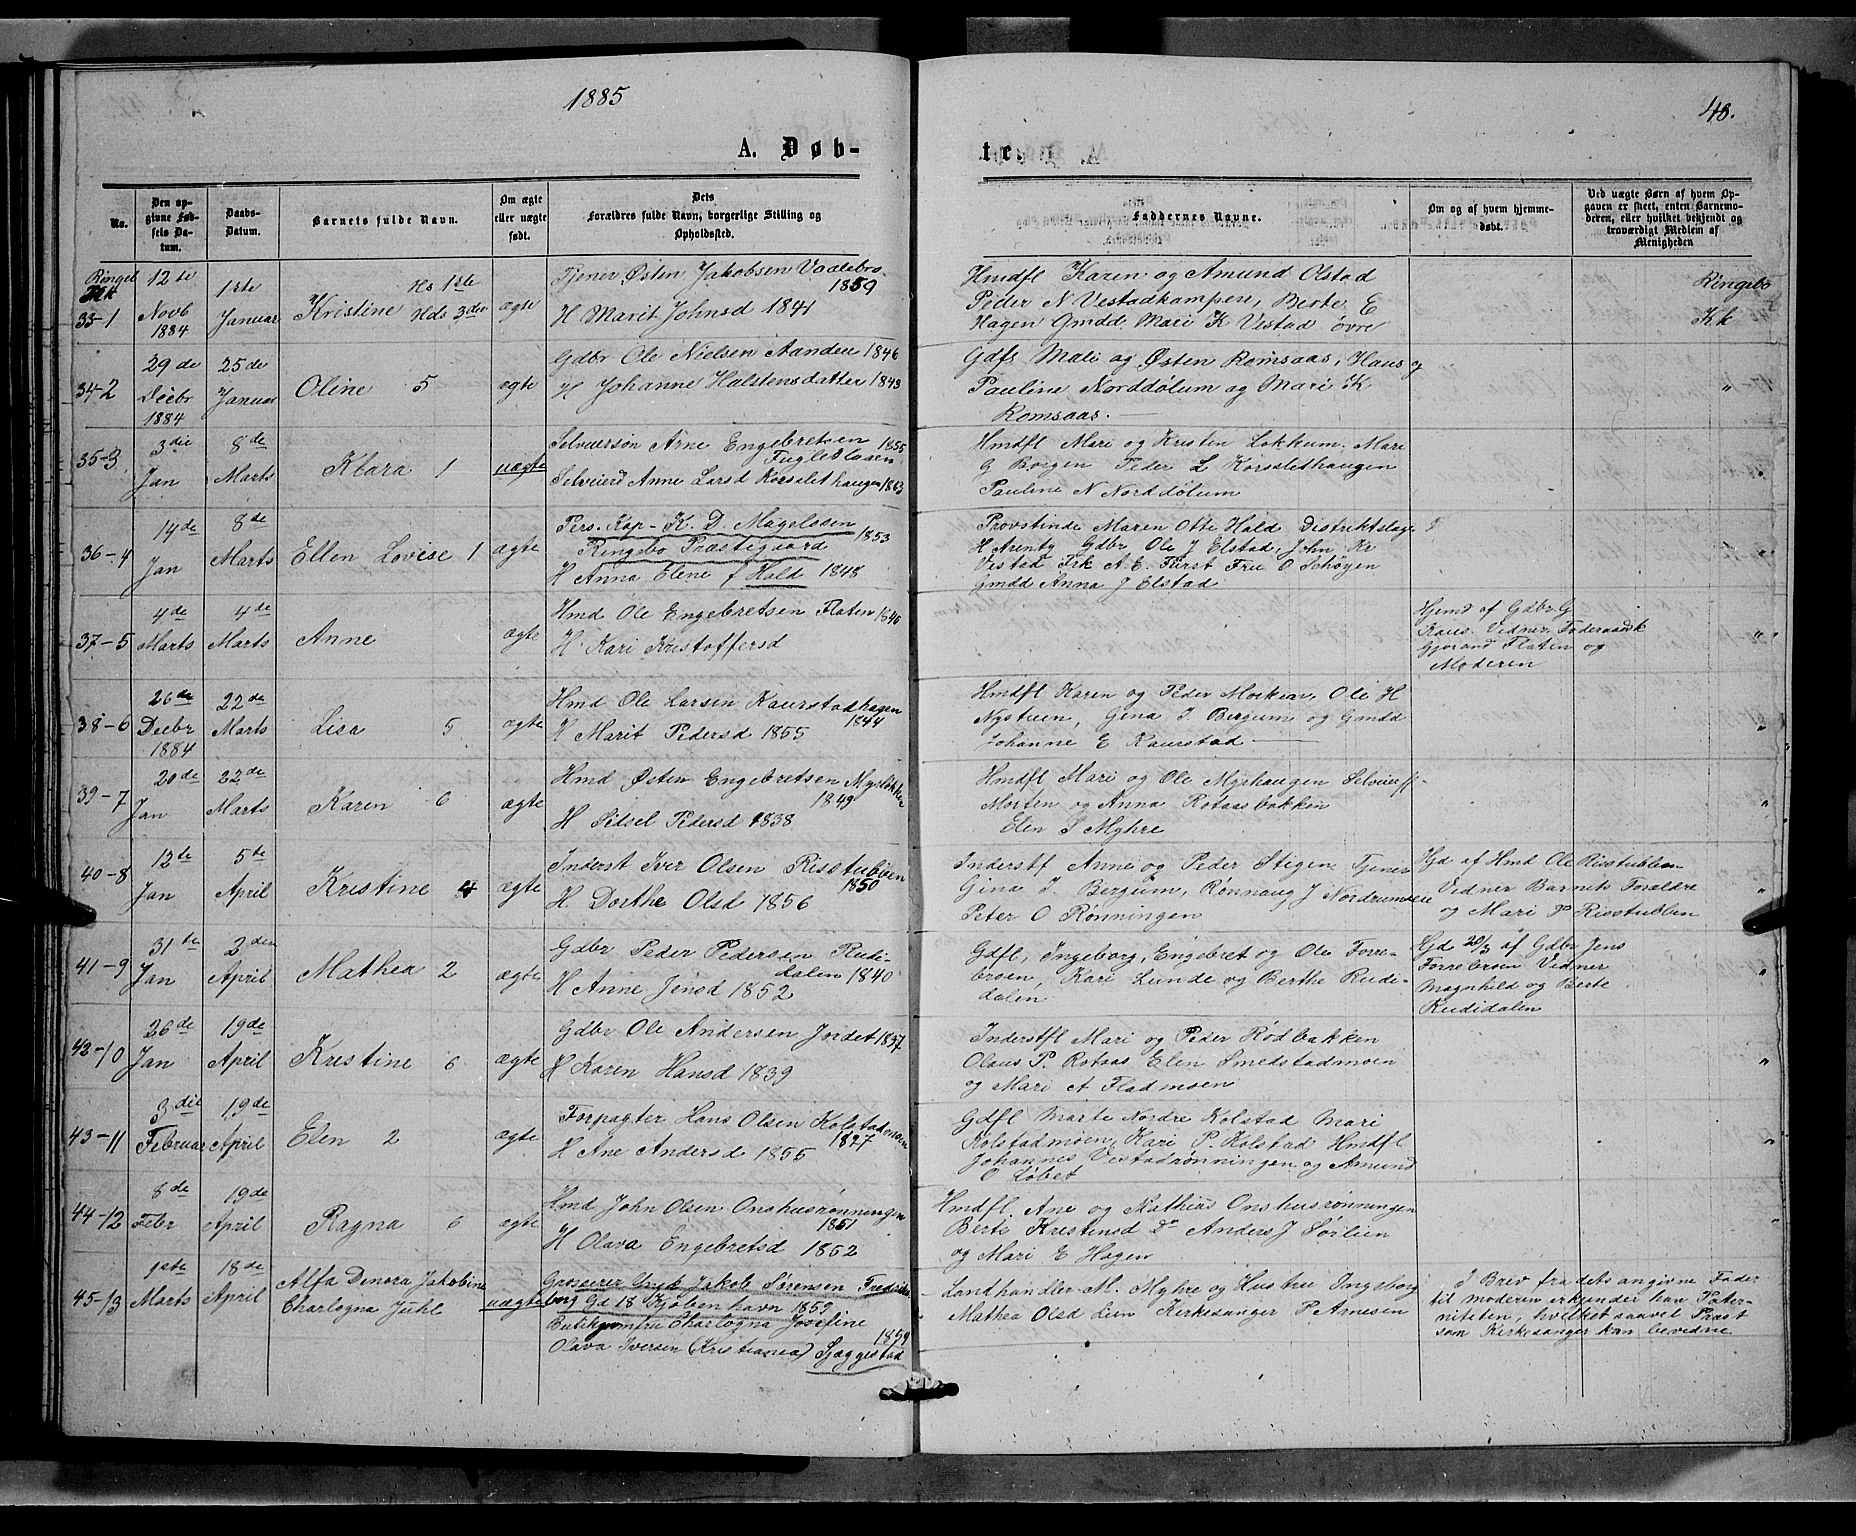 1885
48.
A. Døb-
te.
No.
Den op-
givne Fød-
sels Da-
tum.
Daabs-
Datum.
Barnets fulde Navn.
Om ægte
eller uægte
født.
Dets
Forældres fulde Navn, borgerlige Stilling og
Opholdssted.
Faddernes Navne.
Om og af hvem hjemme-
døbt.
Ved uægte Børn af hvem Op-
gaven er skeet, enten Barnemo-
deren, eller hvilket bekjendt og
troværdigt Medlem af
Menigheden
33-1
12te
Novb
1884
1ste
Januar
Kristine
Hs 1ste
Hds 3die
ægte
Tjener Østen Jakobsen Vaalebro
1859
H Marit Johnsd 1841
Hmdfl Karen og Amund Olstad
Peder N Vestadkampen, Berte E
Hagen Gmdd. Mari K Vestad øvre
Ringebo
Kk
34-2
29de
Decbr
1884
25de
Januar
Oline 5
ægte
Gdbr Ole Nielsen Aandeu 1846
H Johanne Halstensdatter 1843
Gdfs Mali og Østen Romsaas, Hans og
Pauline Norddølum og Mari K
Romsaas.
"
35-3
3die
Jan
8de
Marts
Klara 1
uægte
Selveiersøn Arne Engebretsen 1855
Fugleslaaen
Selveierd Anne Larsd Korsslethaugen 1863
Hmdfl Mari og Kristen Lokkum. Mari
G Borgen Peder L Korsslethaugen
Pauline N Norddølum
"
36-4
14de
Jan
8de
Marts
Ellen Lovise 1
ægte
Pers. Kap- K. D. Magelssen
1853
Ringebo Præstegaard
H Anna Elene f Hald 1848
Provstinde Maren Otte Hald Distriktslæge
H Arentz Gdbr Ole J Elstad, John Kr
Vestad Frk A. E. Fürst Fru O Schøyen
Gmdd Anna J Elstad
"
37-5
4de
Marts
4de
Marts
Anne
ægte
Hmd Ole Engebretsen Flaten 1840
H Kari Kristoffersd
Hjemd af Gdbr G
Kaus. Vidner. Føderaadsk
Gjorand Flaten og
Moderen
"
38-6
26de
Decbr
1884
22de
Marts
Lisa 5
ægte
Hmd Ole Larsen Kaurstadhagen
1844
H Marit Pedersd 1855
Hmdfl Karen og Peder Moekjar, Ole H
Nystuen, Gina I. Bergum og Gmdd
Johanne E Kaurstad
"
39-7
20de
Jan
22de
Marts
Karen 6
ægte
Hmd Østen Engebretsen Myrløkken
1849
H Sidsel Pedersd 1838
Hmdfl Mari og Ole Myrhaugen Selveierfl
Morten og Anna Rotaasbakken
Elen S Myhre
"
40-8
12te
Jan
5te
April
Kristine 4
ægte
Inderst Iver Olsen Risstubben
1850
H Dorthe Olsd 1856
Inderstf Anne og Peder Stigen Tjener
Gina I. Bergum, Rønnaug J Nordrumseie
Peter O Rønningen
Hjd af Hmd Ole Risstubben
Vidner Barnets Forældre
og Mari P Risstubben
"
41-9
31te
Jan
2den
April
Mathea 2
ægte
Gdbr Peder Pedersen Rudi-
dalen 1840
H Anne Jensd 1852
Gdfl, Ingeborg, Engebret og Ole Forre-
broen, Kari Lunde og Berthe Rudi-
dalen
Hjd 20/3 af Gdbr Jens
Forrebroen Vidner
Magnhild og Berte
Rudidalen
"
42-10
26de
Jan
19de
April
Kristine 6
ægte
Gdbr Ole Andersen Jndet 1837
H Karen Hansd 1839
Inderstfl Mari og Peder Rødbakken
Olaus P. Rotaas Elen Smedstadmoen
og Mari A Fladmoen
"
43-11
3die
Februar
19de
April
Elen 2
ægte
Forpagter Hans Olsen Kolstadmoen
1827
H Ane Andersd 1855
Gdfl Marte Nordre Kolstad Mari
Kolstadmoen, Kari P. Kolstad Hmdfl
Johannes Vestadrønningen og Amund
O Løbet
"
44-12
8de
Febr
19de
April
Ragna 6
ægte
Hmd John Olsen Onshusrønningen
1851
H Olava Engebretsd 1852
Hmdfl. Ane og Mathias Onshusrønningen
Berte Kristensd Do Anders J Sørlien
og Mari E Hagen
"
45-13
1ste
Marts
18de
April
Alfa Dinora Jakobine
Charlogna Juhl
uægte
Grosserer Jakob Sørensen Frederiks
borg Gd 18 Kjøbenhavn 1859
Butikjomfru Charlogna Josefine
1859
Olava Iversen (Kristiania) Sjæggestad
Landhandler M. Myhre og Hustru Ingeborg
Mathea Olsd Lien Kirkesanger P Amesen
I Brev fra dets angivne Fader
til moderen erkjender han Pater-
niteten, hvilket saavel Præst
som Kirkesanger kan bevidne